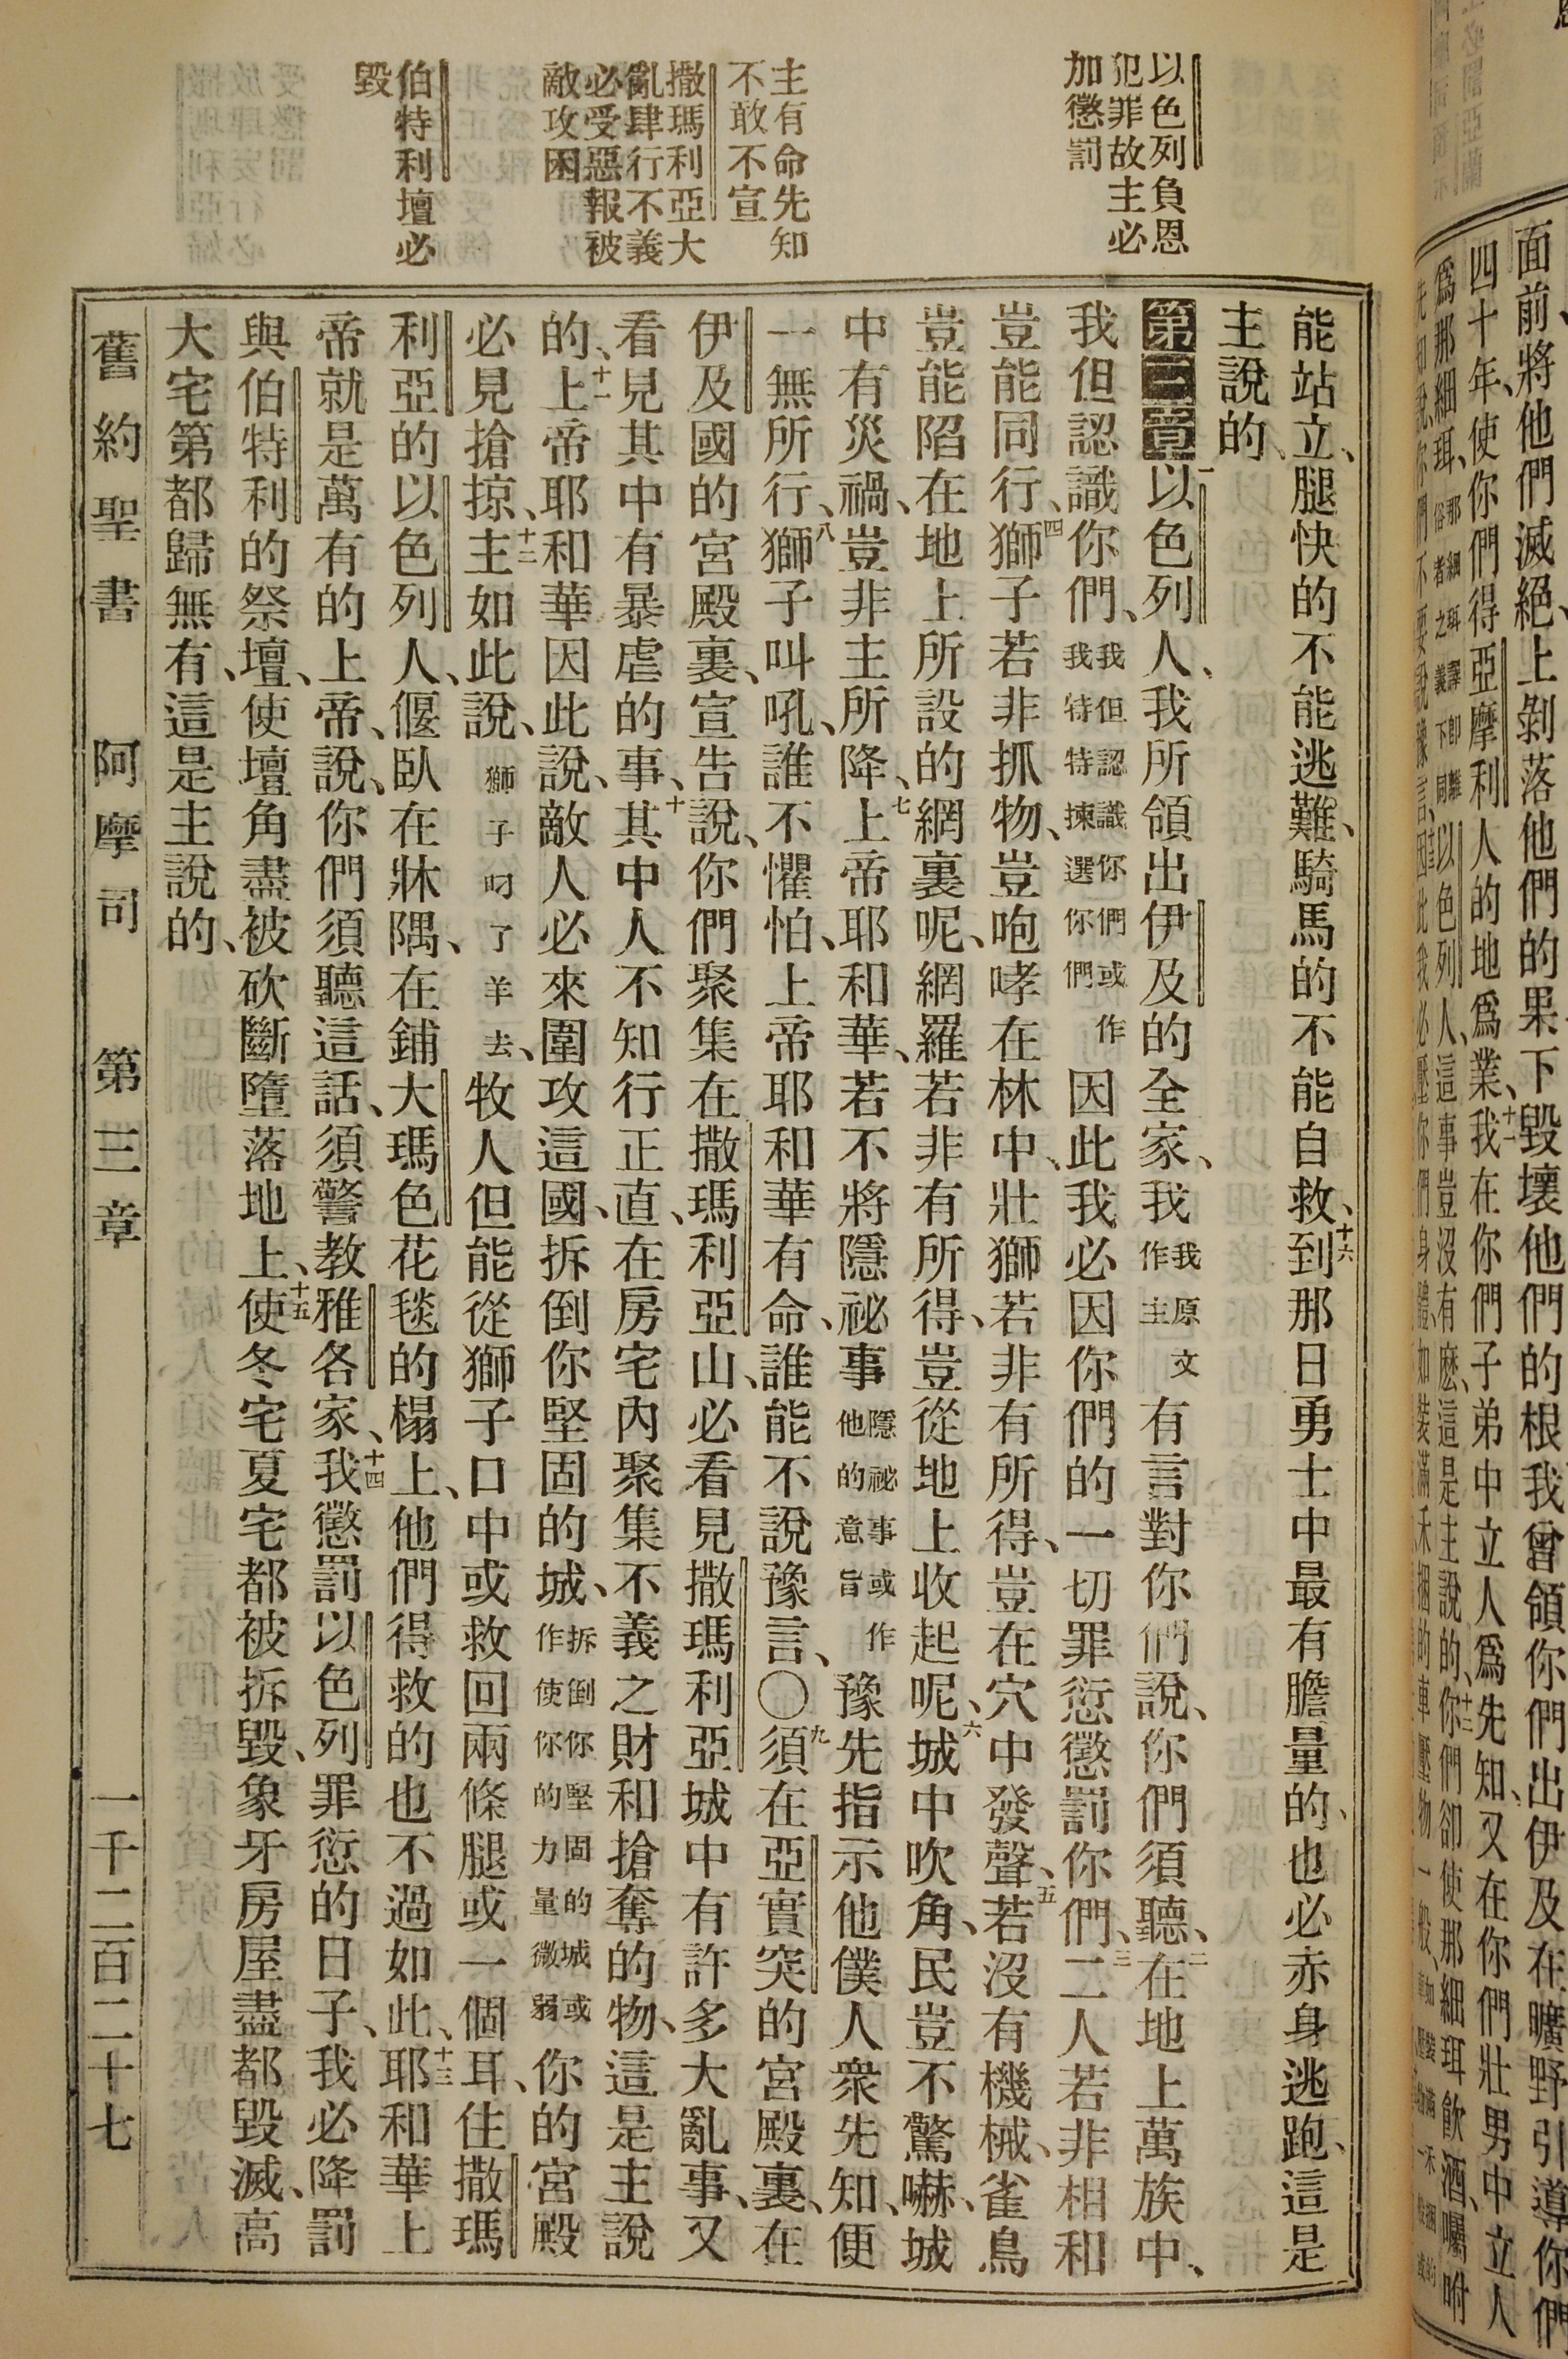 以色列負恩
犯罪故主必
加懲罰
主有命先知
不敢不宣
撒瑪利亞大
亂肆行不義
必受惡報被
敵攻困
伯特利壇必
毀
能站立、腿快的不能逃難、騎馬的不能自救、十六到那日勇士中最有膽量的、也必赤身逃跑、這是
主說的、
第三章一以色列人、我所領出伊及的全家、我我原文作主有言對你們說、你們須聽、二在地上萬族中、
我但認識你們、我但認識你們或作我特特揀選你們因此我必因你們的一切罪愆懲罰你們、三二人若非相和
豈能同行、四獅子若非抓物、豈咆哮在林中、壯獅若非有所得、豈在穴中發聲、五若沒有機械、雀鳥
豈能陷在地上所設的網裏呢、網羅若非有所得、豈從地上收起呢、六城中吹角、民豈不驚嚇、城
中有災禍、豈非主所降、七上帝耶和華、若不將隱祕事隱祕事或作他的意旨豫先指示他僕人衆先知、便
一無所行、八獅子叫吼、誰不懼怕、上帝耶和華有命、誰能不說豫言、〇九須在亞實突的宮殿裏、在
伊及國的宮殿裏、宣告說、你們聚集在撒瑪利亞山、必看見撒瑪利亞城中有許多大亂事、又
看見其中有暴虐的事、十其中人不知行正直、在房宅內聚集不義之財和搶奪的物、這是主說
的、十一上帝耶和華因此說、敵人必來圍攻這國、拆倒你堅固的城、拆倒你堅固的城或作使你的力量微弱你的宮殿
必見搶掠、十二主如此說、獅子叼了羊去、牧人但能從獅子口中或救回兩條腿或一個耳、住撒瑪
利亞的以色列人、偃臥在牀隅、在鋪大瑪色花毯的榻上、他們得救的也不過如此、十三耶和華上
帝就是萬有的上帝、說、你們須聽這話、須警教雅各家、十四我懲罰以色列罪愆的日子、我必降罰
與伯特利的祭壇、使壇角盡被砍斷墮落地上、十五使冬宅夏宅都被拆毀、象牙房屋盡都毀滅、高
大宅第都歸無有、這是主說的、
舊約聖書　阿摩司　第三章　一千二百二十七
面前、將他們滅絕、上剝落他們的果、下毀壞他們的根、我曾領你們出伊及、在曠野引導你們
四十年、使你們得亞摩利人的地爲業、十一我在你們子弟中立人爲先知、又在你們壯男中立人
爲那細珥、那細珥譯卽離俗者之義下同以色列人、這事豈沒有麽、這是主說的、十二你們卻使那細珥飲酒、囑咐